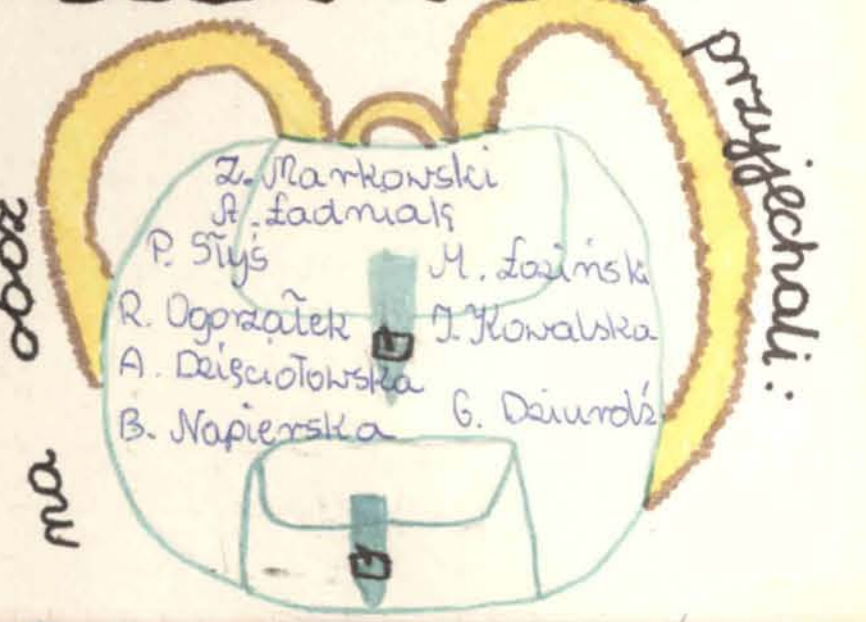 na obóz
przyjechali:
Z. Markowski
A. Ładniak
P. Słyś
M. Łoziński
R. Ogorzałek
J. Kowalska
A. Dzięciołowska
G. Dziurdź
B. Napierska